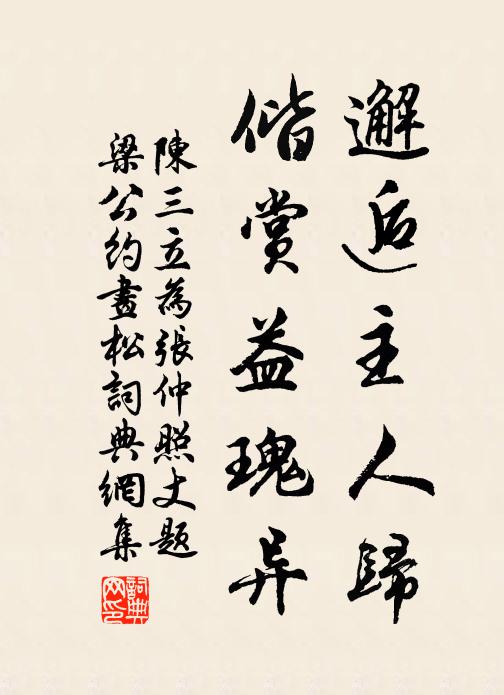 邂逅主人歸
偕賞益瑰异
陳三立為張仲照丈題
梁公約畫松詞典網集
詞典网印